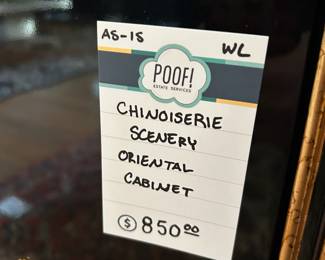 AS-IS WL
POOF!
ESTATE SERVICES
CHINOISERIE
SCENERY
ORIENTAL
CABINET
$ 850.00